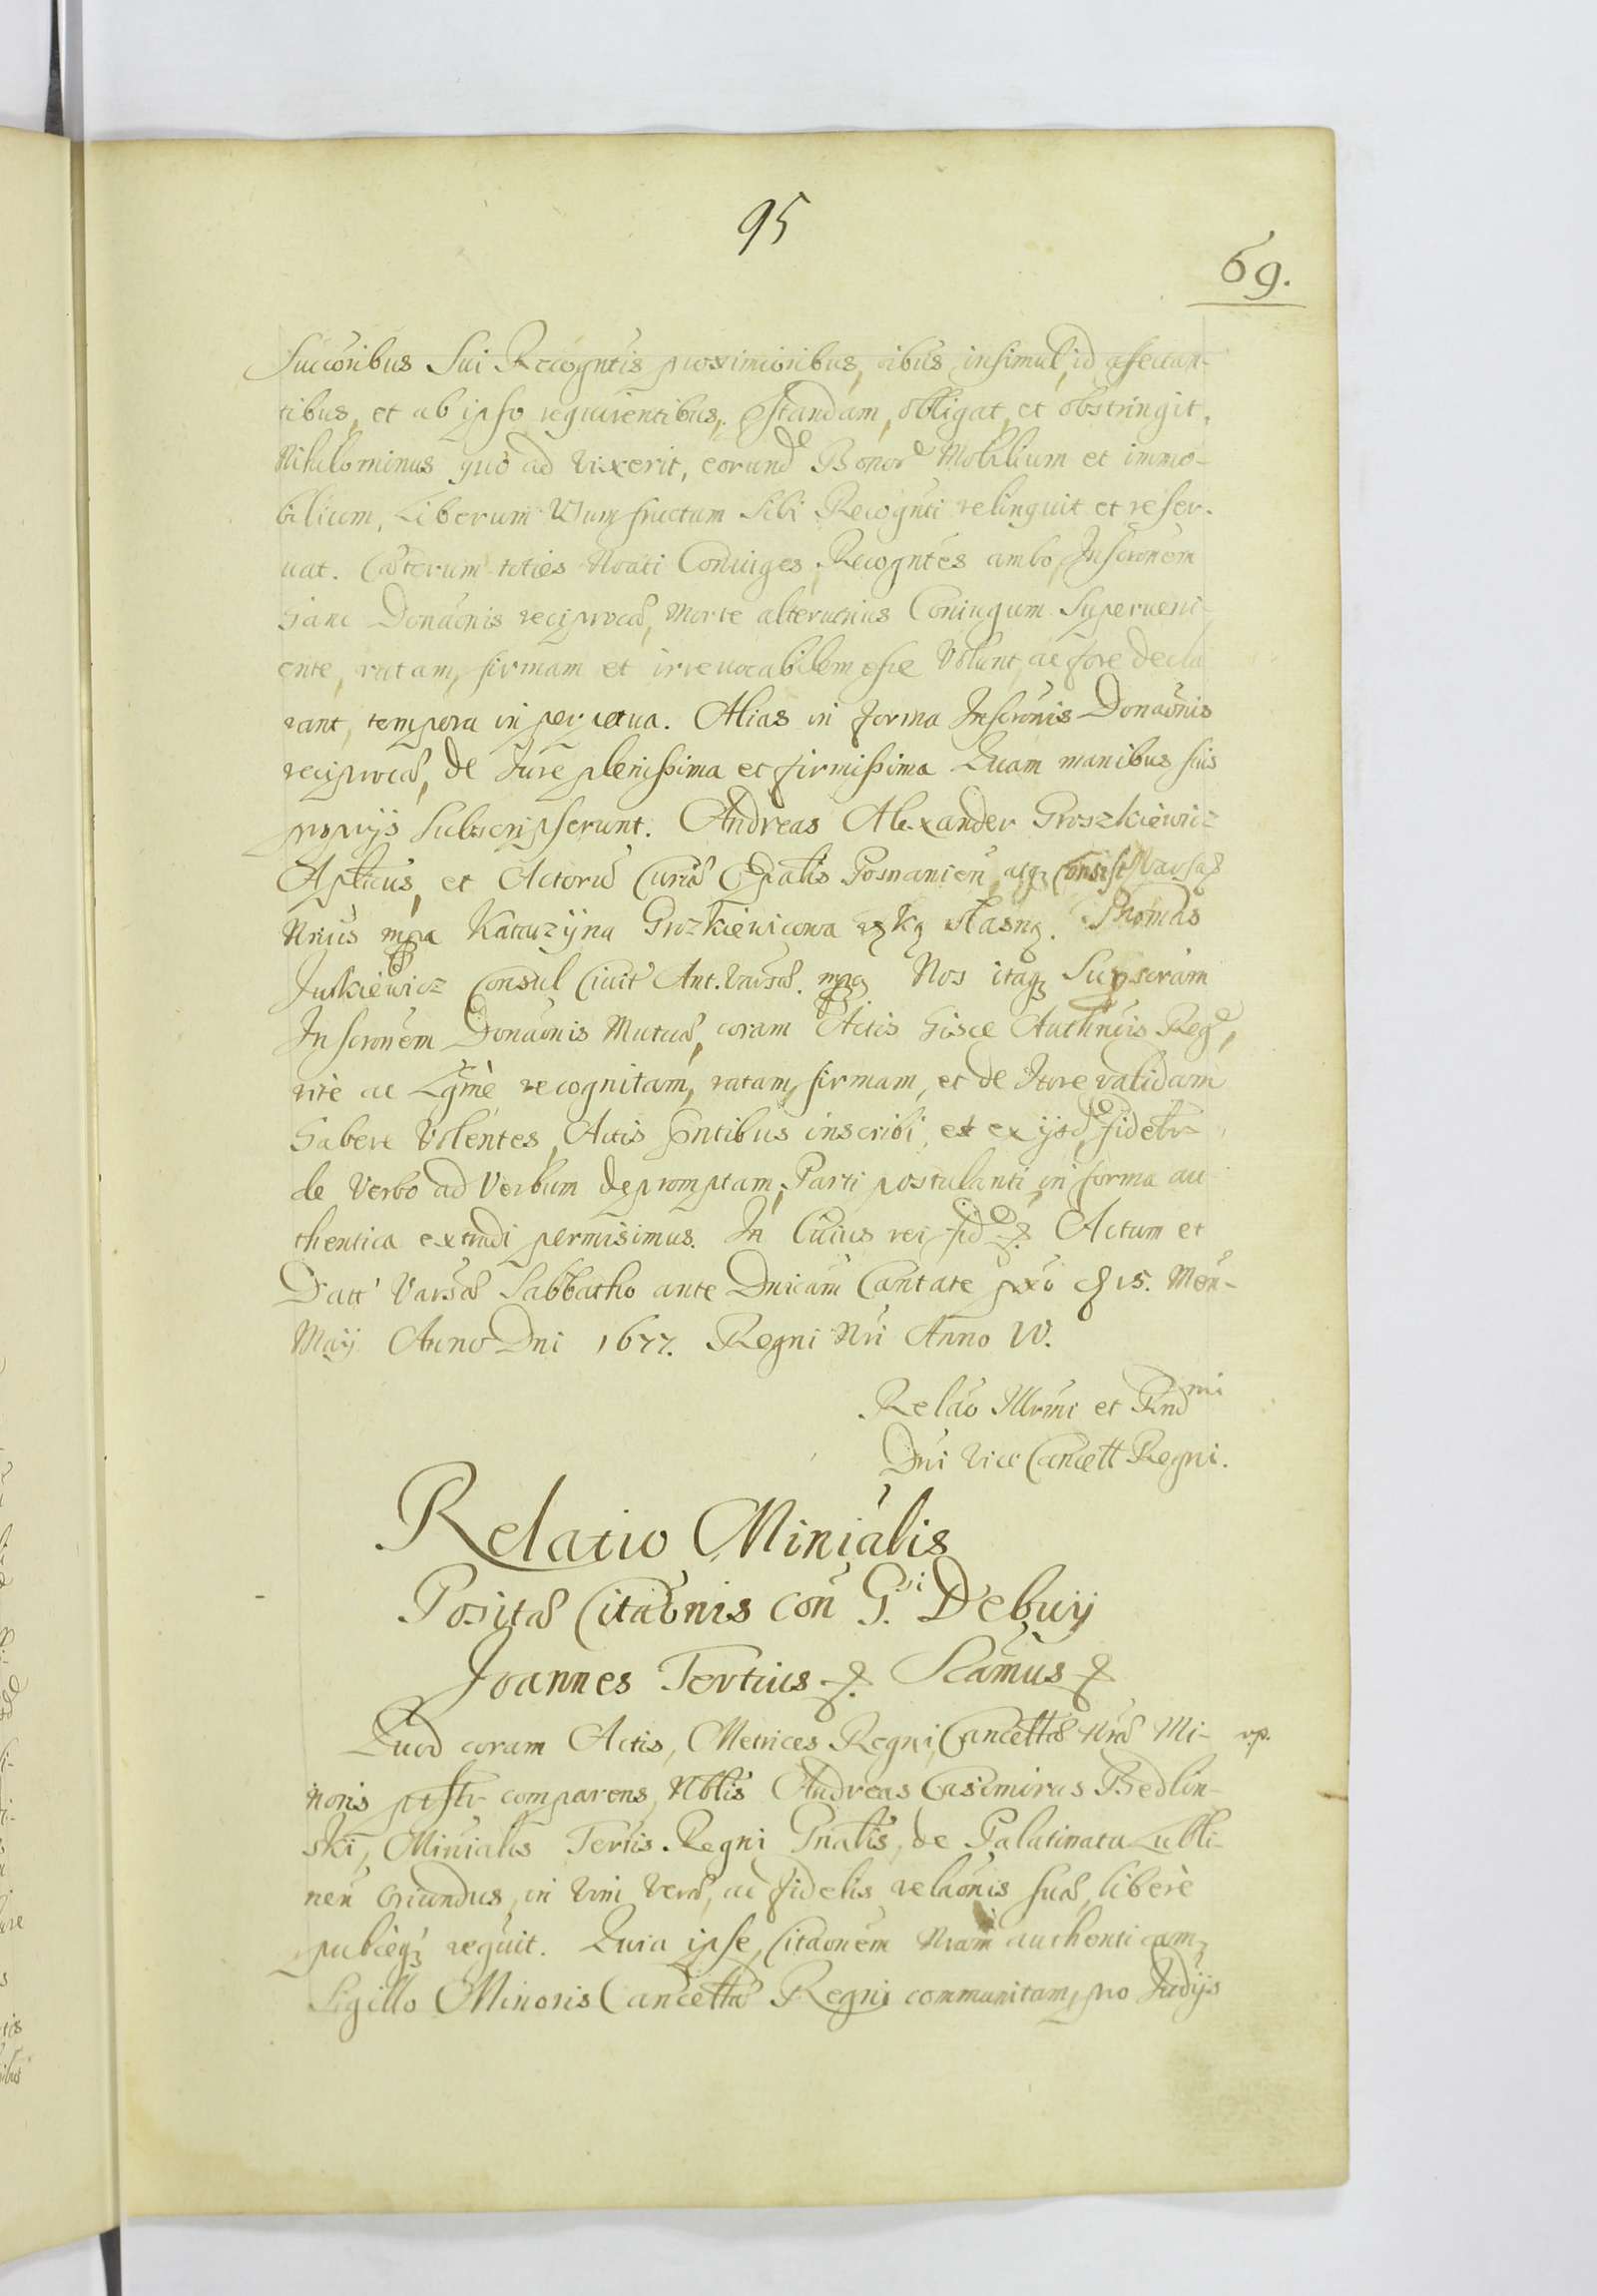 95
69.
Succoribus Sui Recogntis proximioribus, oibus insimul, id affectan-
tibus, et ab ipso requirentibus, pstandam, obligat, et obstringit.
Nihilominus quo ad vixerit, eorund Bonor Mobilium et immo-
bilium, Liberum Usumfructum Sibi Recognti relinquit et reser-
uat. Cæterum toties Nrati Coniuges Recogntes ambo, Inscronem
hanc Donaonis reciprocæ, Morte alterutrius Coniugum Superueni-
ente, ratam, firmam et irreuocabilem esse Volunt, ac fore decla
rant, tempora in perpetua. Alias in forma Inscronis Donaonis
reciprocæ, de Jure plenissima et firmissima Quam manibus suis
propriis Subscripserunt. Andreas Alexander Groszkiewicz
Aplicus, et Actorũ Curiæ Epalis Posnanien, atq Consist Varsaÿ
Nrius mpa Katarzyna Grozkiewicowa ręką własną. Thomas
Juskiewicz Consul Ciuit Ant. Varsæ. mpa Nos itaq Supscram
Inscronem Donaonis Mutuæ, coram Actis hisce Authncis Reg,
ritè ac Lgmè recognitam, ratam, firmam, et de Jure validam
habere Volentes, Actis pntibus inscribi, et ex ijsd fidelr
de Verbo ad Verbum depromptam, Parti postulanti, in forma au
thentica extradi permisimus. In Cuius rei fid &. Actum et
Datt Varsæ Sabbatho ante Dnicam Cantate pxo d 15. Men-
Maij Anno Dni 1677. Regni Nri Anno IV.
Relao Illrmi et Rnd mi
Dni Vice Cancell Regni.
Relatio Minialis
Positæ Citaonis con G. i Debuij
Joannes Tertius &. Scamus &
Quod coram Actis, Metrices Regni, Cancellæ Nræ Mi- r.p.
noris pslr comparens, Nblis Andreas Casimirus Bedlin-
ski, Minialis Terris Regni Gnalis, de Palatinatu Lubli-
nen Oriundus, in Vim Veræ, ac fidelis relaonis suæ, liberè
publiceq recgnuit. Quia ipse, Citaonem Nram authenticam,
Sigillo Minoris Cancellæ Regni communitam, pro Judijs